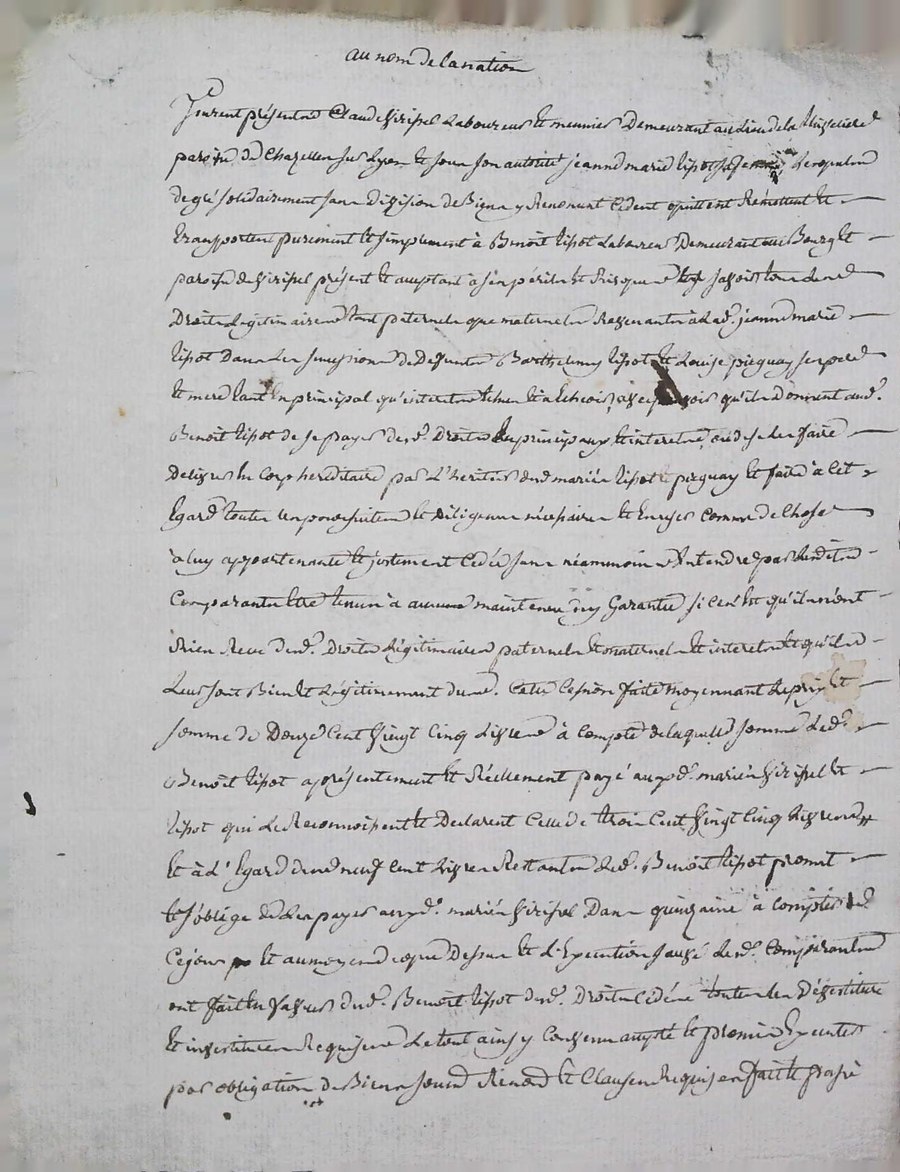 au nom de la nation
furent présents Claude Viripel Laboureur et meunier Demeurant au Lieu de la
paroisse de Chazelles sur Lyon et sous son autorité jeanne marie tipot sa femme Lesquels
de gré solidairement sans Division de Biens y Renoncant Cedent quittent Rémettent et
transportent purement et simplement à Benoit tipot Laboureur Demeurant au Bourg et
paroisse de Viripel présent et acceptant à ses périls et Risques savoir tous Les
Droits Légitimaires tant paternels que maternels Revenants à Lad. jeanne marie
tipot Dans Les sucessions de Defunts Barthelemy tipot et Louise piquay ses pere
et mere tant en principal qu'interets échus et a échoir, avec pouvoir qu'ils Donnent aud.
Benoit tipot de se payer desd. Droits en principaux et interets, ou de se Les faire
Delivrer en Corps hereditaire par L'heritier desd mariés tipot et piquay et faire à cet
Egard toutes Les poursuites et Diligences nécessaires et Enuser Comme de Chose
à luy appartenante et justement Cedée sans néanmoins Entendre par Lesdits
Comparants Etre tenus à aucune maintenue ny Garantie si ce n'est qu'ils n'ont
Rien Reçu desd. Droits Légitimaires paternels et maternels et interets et qu'ils
Leur sont Bien et Légitimement dus. Cette Cession faite moyennant Le prix et
somme de Douze Cent Vingt Cinq Livres à Compte de laquelle somme Led.
Benoit tipot a présentement et Réellement payé auxd. mariés Viripel et
tipot qui Le Reconnoissent et Declarent Celle de trois Cent Vingt Cinq Livres
Et à L'Egard des neuf Cent Livres Restantes Led. Benoit tipot promet
et s'oblige de Les payer auxd. mariés Viripel Dans quinzaine à Compter de
Ce jour et au moyen de ce que Dessus et L'Execution Lesd. Comparants
ont fait en faveur dud. Benoit tipot desd. Droits Cédés toutes Les Dévestitures
et investitures Requises Le tout ainsy Convenu accepté et promis Executer
par obligation de Biens Renond et Clauses Requises fait et passé